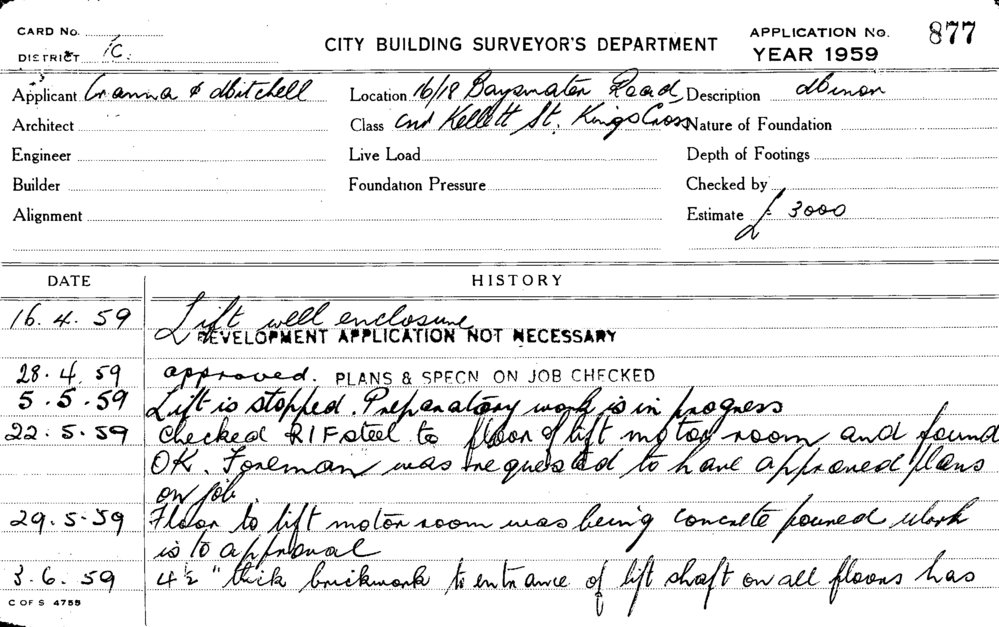 CARD No.
DISTRICT 1C.
CITY BUILDING SURVEYOR'S DEPARTMENT
APPLICATION No. 877
YEAR 1959
Applicant Cranna & Mitchell
Location 16/18 Bayswater Road
Description Minor
Architect
Class cnr Kellett St. Kings Cross
Nature of Foundation
Engineer
Live Load
Depth of Footings
Builder
Foundation Pressure
Checked by
Alignment
Estimate £ 3000
DATE HISTORY
16.4.59 Lift well enclosure
DEVELOPMENT APPLICATION NOT NECESSARY
28.4.59 approved. PLANS & SPECN ON JOB CHECKED
5.5.59 Lift is stopped. Preparatory work is in progress
22.5.59 Checked RIF steel to floor of lift motor room and found
OK. Foreman was requested to have approved plans
on job.
29.5.59 Floor to lift motor room was being concrete poured work
is to approval
3.6.59 4½" thick brickwork to entrance of lift shaft on all floors has
C OF S 4755